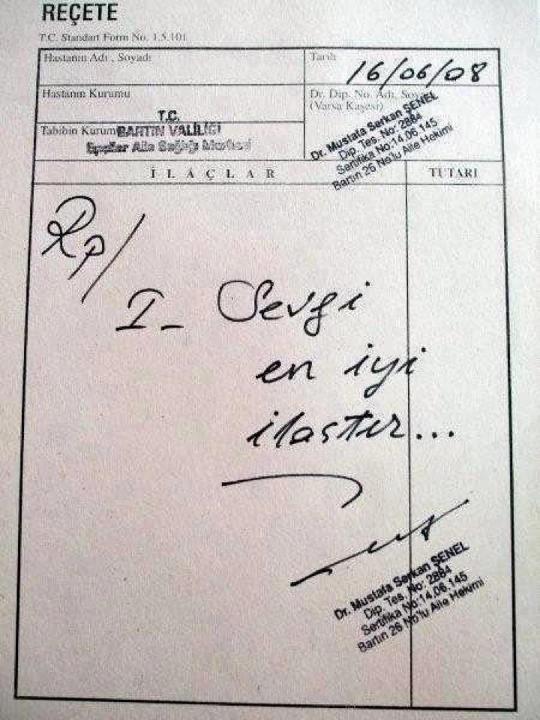 REÇETE
T.C. Standart Form No. 1.5.101
Hastanın Adı , Soyadı
Tarih
16/06/08
Hastanın Kurumu
Dr. Dip. No. Adı, Soyadı
(Varsa Kaşesi)
T.C.
Tabibin Kurumu BARTIN VALİLİĞİ
Aile Sağlığı Merkezi
Dr. Mustafa Serkan ŞENEL
Dip. Tes. No: 2884
Sertifika No:14.06.145
Bartın 26 No'lu Aile Hekimi
İLAÇLAR
TUTARI
Rp/
I- Sevgi
en iyi
ilaçtır...
Dr. Mustafa Serkan ŞENEL
Dip. Tes. No: 2884
Sertifika No:14.06.145
Bartın 26 No'lu Aile Hekimi